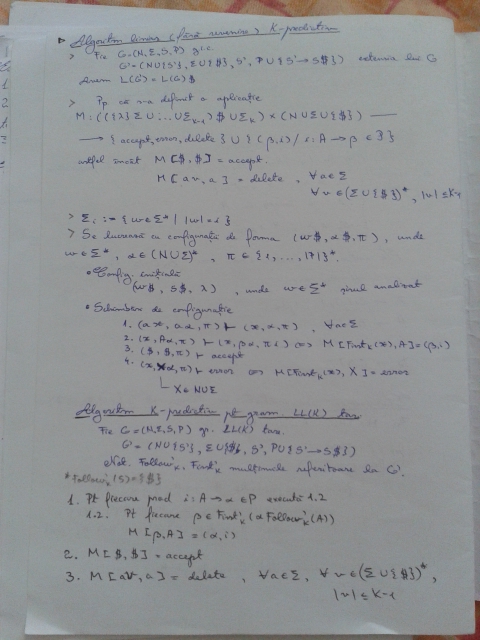 Algoritm liniar (fără revenire) K-predictiv
> Fie G=(N,Σ,S,P) g.i.c.
G'=(N∪{S'}, Σ∪{$}, S', P∪{S'→S$}) extensia lui G
Avem L(G')=L(G)$
> Pp că s-a definit o aplicație
M: (({λ}∪Σ∪...∪Σk-1)$∪Σk)×(N∪Σ∪{$}) —
→ {accept, error, delete}∪{(β,i)/ i:A→β∈P}
astfel încât M[$,$]=accept.
M[av,a]=delete, ∀a∈Σ
∀v∈(Σ∪{$})*, |v|≤K-1
> Σi := {w∈Σ* | |w|=i}
> Se lucrează cu configurații de forma (w$, α$, π), unde
w∈Σ*, α∈(N∪Σ)*, π∈{1,...,|P|}*.
• Config. inițială
(w$, S$, λ), unde w∈Σ* șirul analizat
• Schimbare de configurație
1. (ax, aα, π) ⊢ (x, α, π), ∀a∈Σ
2. (x, Aα, π) ⊢ (x, βα, πi) ⇔ M[Firstk(x), A]=(β,i)
3. ($, $, π) ⊢ accept
4. (x, Xα, π) ⊢ error ⇔ M[Firstk(x), X]=error
X∈N∪Σ
Algoritm K-predictiv pt gram. LL(K) tari
Fie G=(N,Σ,S,P) gr. LL(K) tare.
G'=(N∪{S'}, Σ∪{$}, S', P∪{S'→S$})
Not. Follow'k, First'k mulțimile referitoare la G'.
*Follow'k(S)={$}
1. Pt fiecare prod i:A→α∈P execută 1.2
1.2. Pt fiecare β∈First'k(αFollow'k(A))
M[β,A]=(α,i)
2. M[$,$]=accept
3. M[av,a]=delete, ∀a∈Σ, ∀v∈(Σ∪{$})*,
|v|≤K-1